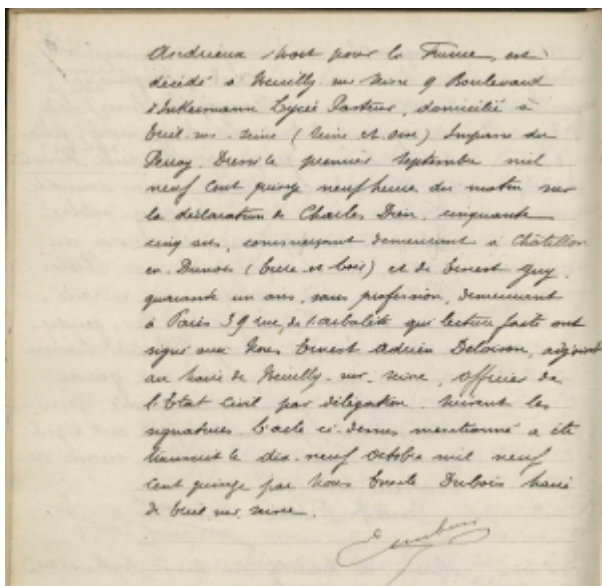 Andrieux Mort pour la France, est
décédé à Neuilly sur Seine 9 Boulevard
d'Inkermann Lycée Pasteur, domicilié à
Creil-sur-Seine (Seine et Oise) Impasse du
Perroy. Dressé le premier Septembre mil
neuf cent quinze neuf heures du matin sur
la déclaration de Charles Drein, cinquante
cinq ans, commerçant demeurant à Châtillon
en-Dunois (Eure-et-Loir) et de Ernest Guy,
quarante un ans, sans profession, demeurant
à Paris 39 rue de l'arbalète qui lecture faite ont
signé avec Nous Ernest Adrien Deloison, adjoint
au Maire de Neuilly-sur-Seine, Officier de
l'Etat Civil par délégation. Suivent les
signatures. L'acte ci-dessus mentionné a été
transcrit le dix-neuf Octobre mil neuf
cent quinze par Nous Emile Dubois Maire
de sur Seine.